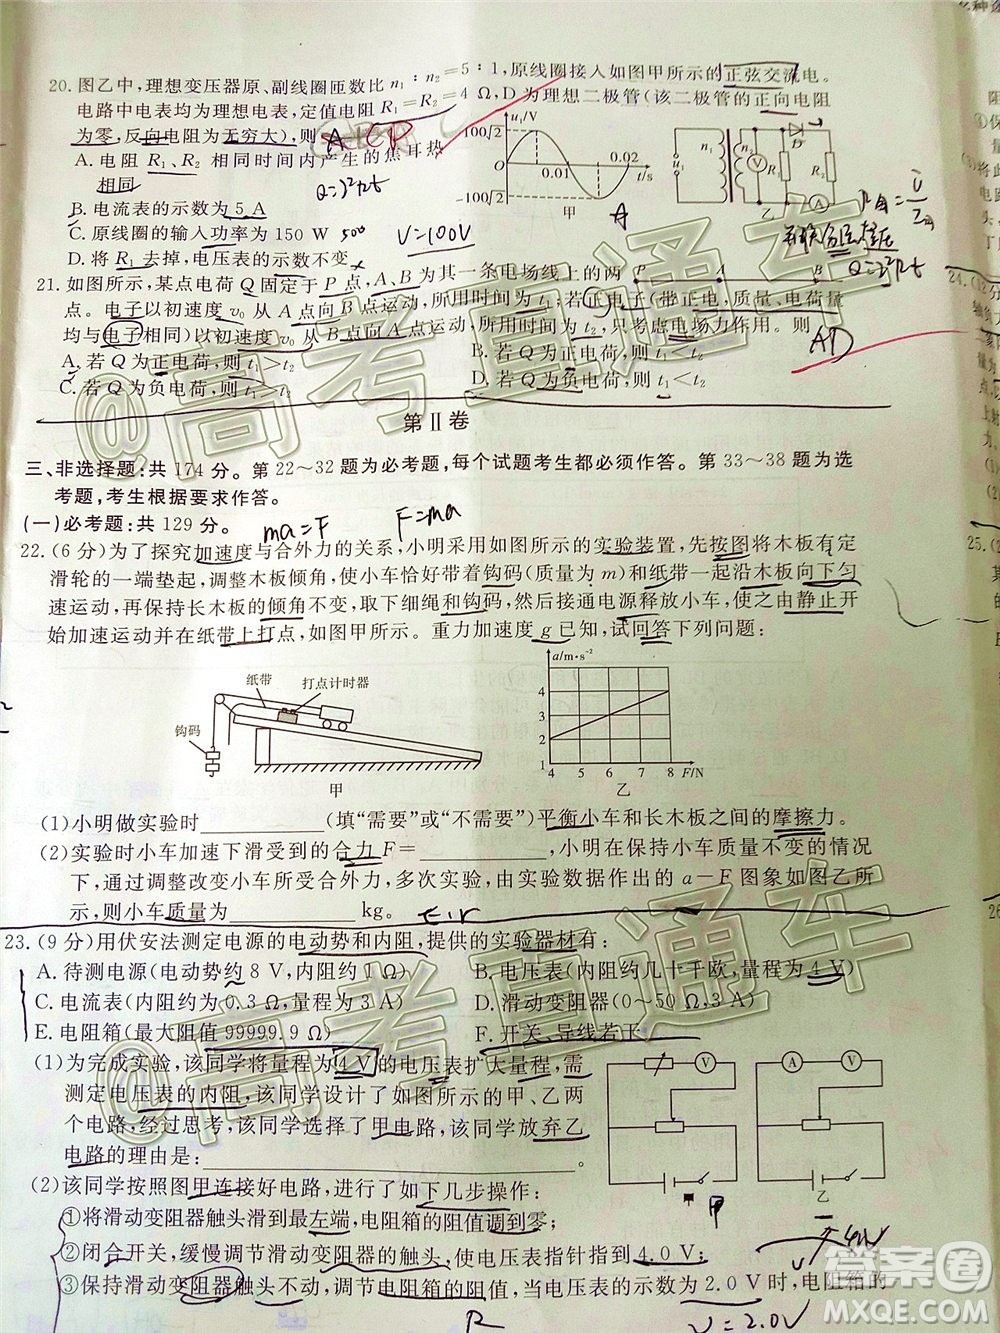 20. 图乙中,理想变压器原、副线圈匝数比 n₁∶n₂=5∶1,原线圈接入如图甲所示的正弦交流电。
电路中电表均为理想电表,定值电阻 R₁=R₂=4 Ω,D 为理想二极管(该二极管的正向电阻
为零,反向电阻为无穷大),则
A. 电阻 R₁、R₂ 相同时间内产生的焦耳热
相同
Q=I²Rt
B. 电流表的示数为 5 A
C. 原线圈的输入功率为 150 W
500
V=100V
D. 将 R₁ 去掉,电压表的示数不变
u₁/V
100√2
O
-100√2
0.01
0.02
t/s
甲
A
u₁
n₁
n₂
V
R₁
D
R₂
A
乙
Q=I²Rt
21. 如图所示,某点电荷 Q 固定于 P 点,A、B 为其一条电场线上的两
点。电子以初速度 v₀ 从 A 点向 B 点运动,所用时间为 t₁;若正电子(带正电,质量、电荷量
均与电子相同)以初速度 v₀ 从 B 点向 A 点运动,所用时间为 t₂,只考虑电场力作用。则
P A B
AD
A. 若 Q 为正电荷,则 t₁>t₂
B. 若 Q 为正电荷,则 t₁=t₂
C. 若 Q 为负电荷,则 t₁>t₂
D. 若 Q 为负电荷,则 t₁<t₂
第Ⅱ卷
三、非选择题:共 174 分。第 22～32 题为必考题,每个试题考生都必须作答。第 33～38 题为选
考题,考生根据要求作答。
(一)必考题:共 129 分。
ma=F
F=ma
22. (6 分)为了探究加速度与合外力的关系,小明采用如图所示的实验装置,先按图将木板有定
滑轮的一端垫起,调整木板倾角,使小车恰好带着钩码(质量为 m)和纸带一起沿木板向下匀
速运动,再保持长木板的倾角不变,取下细绳和钩码,然后接通电源释放小车,使之由静止开
始加速运动并在纸带上打点,如图甲所示。重力加速度 g 已知,试回答下列问题:
纸带
打点计时器
钩码
甲
a/m·s⁻²
4
3
2
1
4 5 6 7 8 F/N
乙
(1)小明做实验时____________(填“需要”或“不需要”)平衡小车和长木板之间的摩擦力。
(2)实验时小车加速下滑受到的合力 F=____________,小明在保持小车质量不变的情况
下,通过调整改变小车所受合外力,多次实验,由实验数据作出的 a－F 图象如图乙所
示,则小车质量为____________kg。
E,r
23. (9 分)用伏安法测定电源的电动势和内阻,提供的实验器材有:
A. 待测电源(电动势约 8 V,内阻约 1 Ω)
B. 电压表(内阻约几十千欧,量程为 4 V)
C. 电流表(内阻约为 0.3 Ω,量程为 3 A)
D. 滑动变阻器(0～50 Ω,3 A)
E. 电阻箱(最大阻值 99999.9 Ω)
F. 开关、导线若干
(1)为完成实验,该同学将量程为 4 V 的电压表扩大量程,需
测定电压表的内阻,该同学设计了如图所示的甲、乙两
个电路,经过思考,该同学选择了甲电路,该同学放弃乙
电路的理由是:____________________。
V
A V
甲
乙
(2)该同学按照图甲连接好电路,进行了如下几步操作:
①将滑动变阻器触头滑到最左端,电阻箱的阻值调到零;
②闭合开关,缓慢调节滑动变阻器的触头,使电压表指针指到 4.0 V;
③保持滑动变阻器触头不动,调节电阻箱的阻值,当电压表的示数为 2.0 V 时,电阻箱的
R
V=2.0V
@高考直通车
@高考直通车
答案圈
MXQE.COM